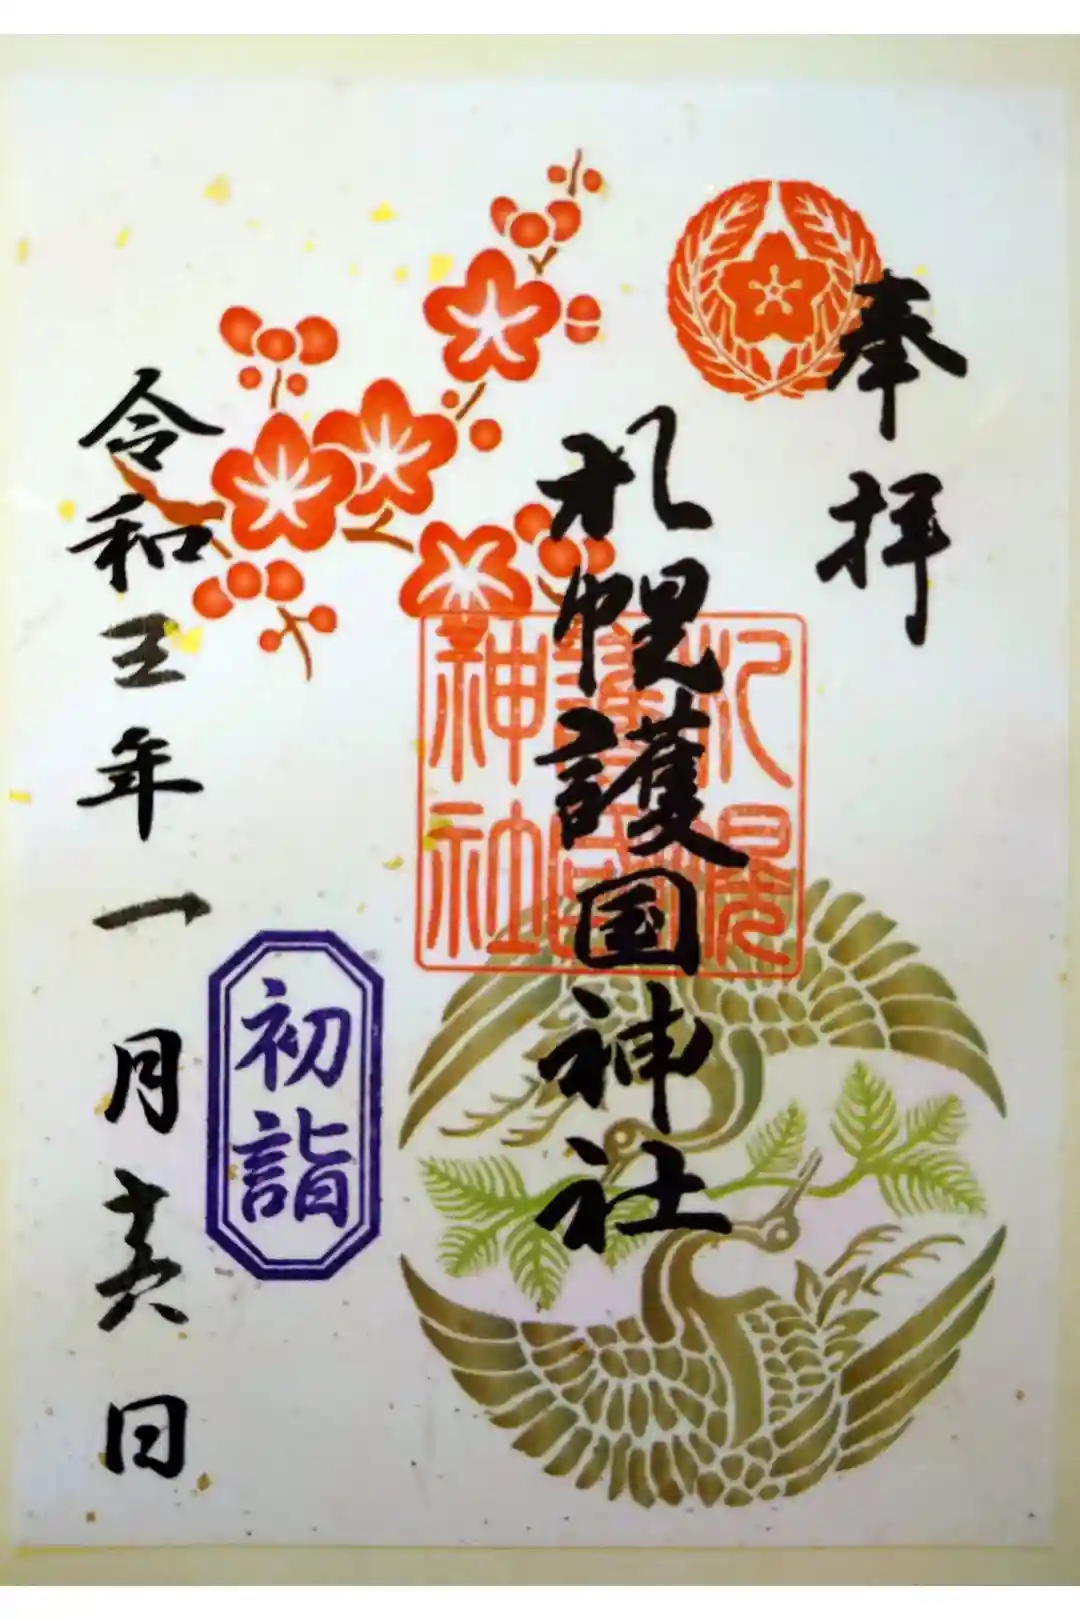 奉拝
札幌護国神社
札幌
護國
神社
初詣
令和三年一月十六日